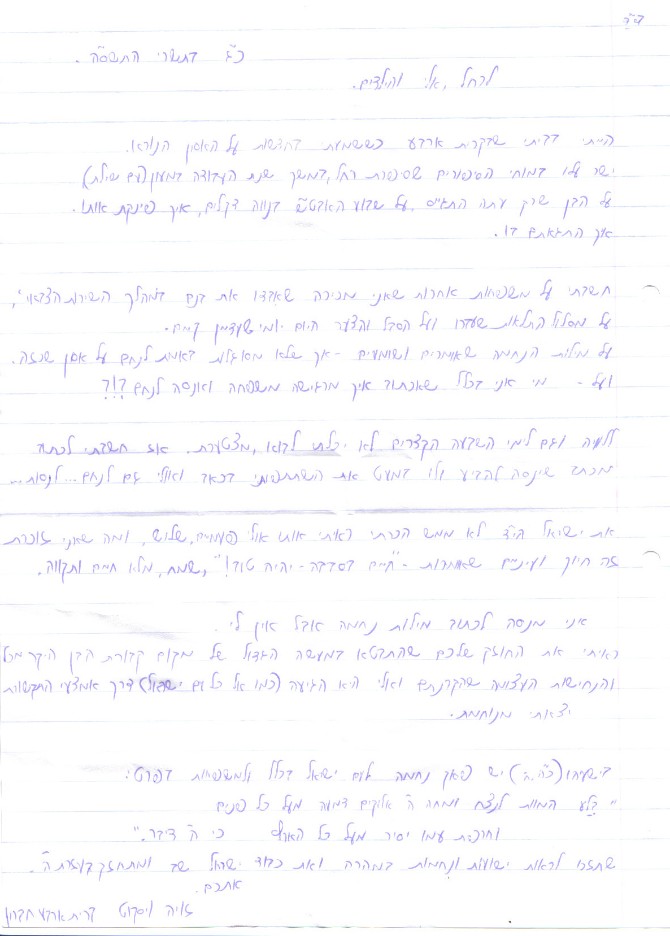 בס"ד
כ"ג בתשרי התשס"ה.
לרחל, אלי והילדים.
הייתי בביתי שבקרית ארבע כששמעתי בחדשות על האסון הנורא.
ישר עלו במוחי הסיפורים שסיפרת רחל, במשך שנת העבודה במעון (עם שילת)
על הבן שרק עתה התגייס. על שבוע האבט"ש בנווה דקלים, איך פינקת אותו.
איך התגאתם בו.
חשבתי על משפחות אחרות שאני מכירה שאיבדו את בנם במהלך השירות הצבאי,
על מסלול התלאות שעברו ועל הסבל והצער היום יומי שעדיין קיים.
על מילות הנחמה שאומרים ושומעים - אך שלא מסוגלות באמת לנחם על אסון שכזה.
ועל - מי אני בכלל שאכתוב איך מרגישה משפחה ואנסה לנחם?!?
ללויה וגם לימי השבעה הקצרים לא יכלתי לבוא, מצטערת. אז חשבתי לכתוב
מכתב שינסה להביע ולו במעט את השתתפותי בכאב ואולי גם לנחם... לנסות...
את ישראל הי"ד לא ממש הכרתי ראיתי אותו אולי פעמיים, שלוש, ומה שאני זוכרת
זה חיוך ועיניים שאומרות - "חיים בסבבה - יהיה טוב!", שמח, מלא חיים ותקווה.
אני מנסה לכתוב מילות נחמה אבל אין לי.
ראיתי את החוזק שלכם שהתבטא במעשה הגדול של מקום קבורת הבן היקר מכל
והנחישות העצומה שהקרנתם ואולי היא הגיעה (כמו אל כל עם ישראל) דרך אמצעי התקשורת
יצאתי מנוחמת.
בישעיהו (כ"ה, ח') יש פסוק נחמה לעם ישראל בכלל ולמשפחות בפרט:
"בלע המוות לנצח ומחה ה' אלוקים דמעה מעל כל פנים
וחרפת עמו יסיר מעל כל הארץ כי ה' דיבר."
שתזכו לראות ישועות ונחמות במהרה ואת כבוד ישראל שב ומתחזק בעזרת ה'.
אתכם.
קרית ארבע חברון